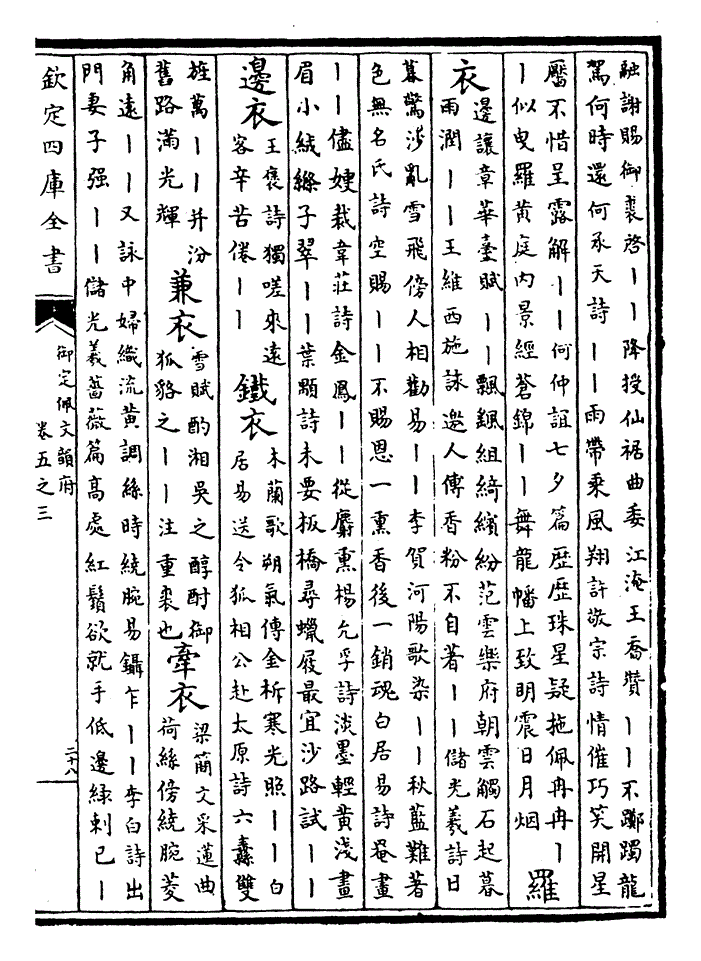 融謝賜御裘啓丨丨降授仙裾曲委江淹王喬贊丨丨不躑躅龍
駕何時還何承天詩丨丨雨帶乘風翔許敬宗詩情催巧笑開星
靨不惜呈露解丨丨何仲誼七夕篇歴歴珠星疑拖佩冉冉丨
丨似曳羅黄庭内景經蒼錦丨丨舞龍幡上致明霞日月烟
羅
衣
邊讓章華臺賦丨丨飄颻組綺繽紛范雲樂府朝雲觸石起暮
雨潤丨丨王維西施詠邀人傳香粉不自著丨丨儲光羲詩日
暮驚沙亂雪飛傍人相勸易丨丨李賀河陽歌染丨丨秋藍難著
色無名氏詩空賜丨丨不賜恩一熏香後一銷魂白居易詩菴畫
丨丨儘嫂裁韋莊詩金鳳丨丨從麝熏楊允孚詩淡墨輕黄淺畫
眉小絨縧子翠丨丨葉顒詩未要板橋尋蠟屐最宜沙路試丨丨
邊衣
王褒詩獨嗟來遠
客辛苦倦丨丨
鐵衣
木蘭歌朔氣傳金柝寒光照丨丨白
居易送令狐相公赴太原詩六纛雙
旌萬丨丨并汾
舊路滿光輝
兼衣
雪賦酌湘吳之醇酎御
狐貉之丨丨注重裘也
牽衣
梁簡文采蓮曲
荷絲傍繞腕菱
角遠丨丨又詠中婦織流黄調絲時繞腕易鑷乍丨丨李白詩出
門妻子强丨丨儲光羲薔薇篇高處紅鬚欲就手低邊緑刺已丨
欽定四庫全書
御定佩文韻府
卷五之三
二十八